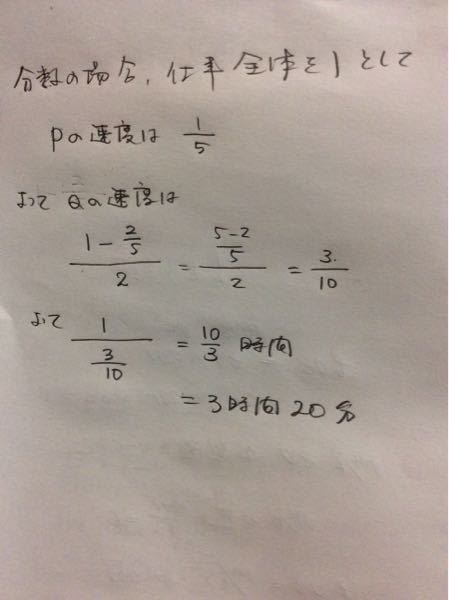 分数の場合、仕事全体を1として
Pの速度は 1/5
よって Qの速度は
(1-2/5)/2 = ((5-2)/5)/2 = 3/10
よって 1/(3/10) = 10/3 時間
= 3時間20分